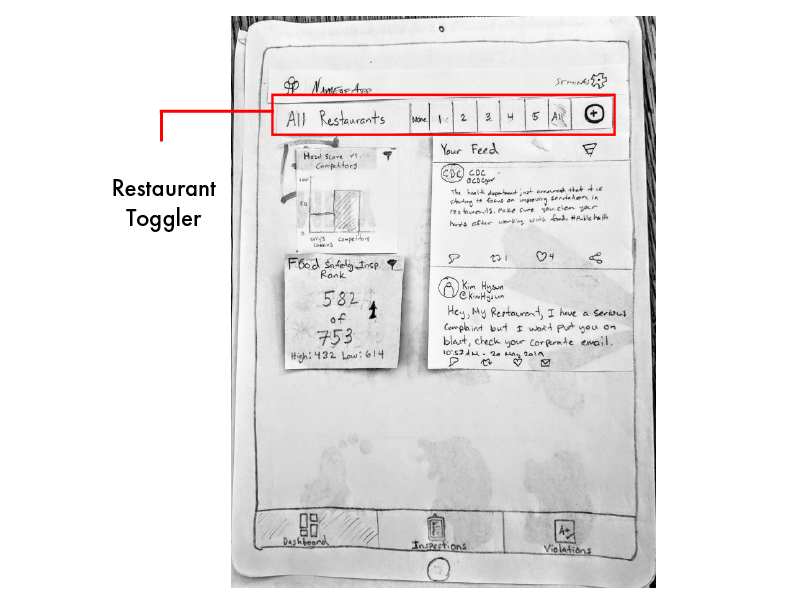 NAME OF APP
SETTINGS
All Restaurants
None 1 2 3 4 5 All
Restaurant
Toggler
Hazel Score vs.
Competitors
100
50
0
Competitors
Cooking
Food Safety Insp.
Rank
582
of
753
High: 432 Low: 614
Your Feed
CDC CDC
@CDCgov
The health department just announced that it is
starting to focus on improving sanitation in
restaurants. Make sure you clean your
hands after working with food. #Publichealth
1 4
Kim Hysun
@KimHysun
Hey, My Restaurant, I have a serious
Complaint but I won't put you on
blast, check your Corporate email.
10:57 AM - 20 May 2019
Dashboard
Inspections
A+
Violations